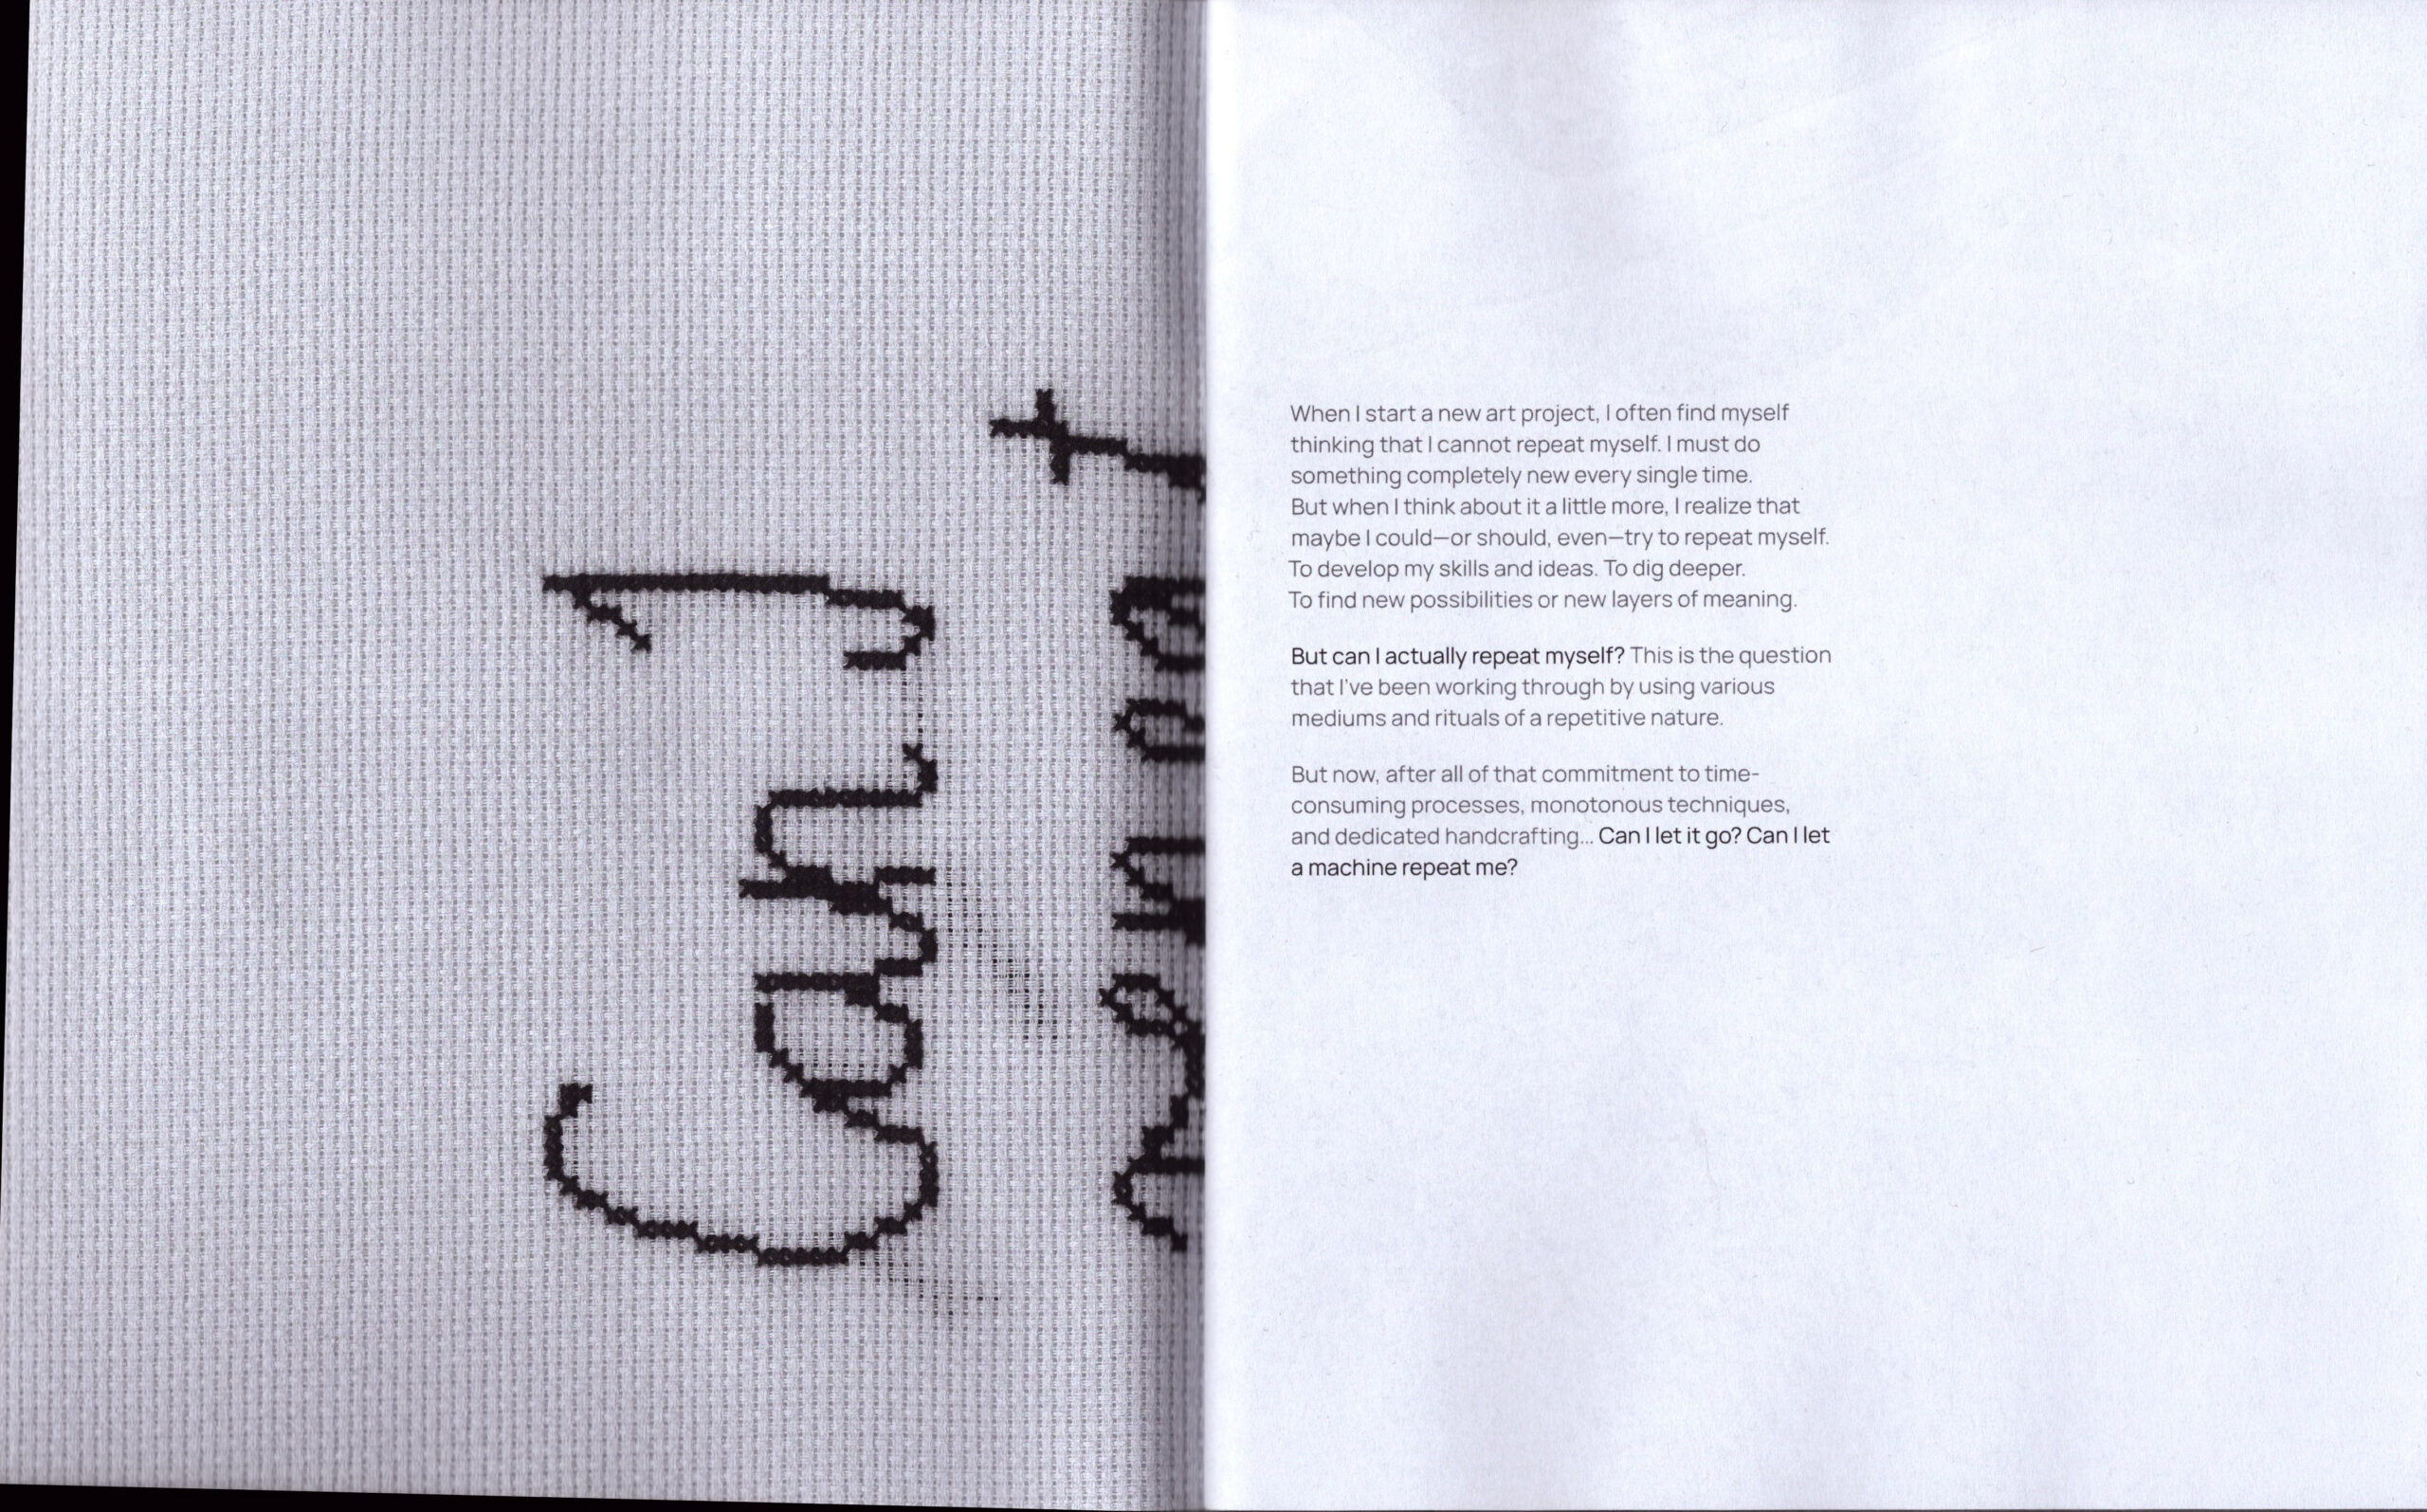 Can I
When I start a new art project, I often find myself
thinking that I cannot repeat myself. I must do
something completely new every single time.
But when I think about it a little more, I realize that
maybe I could—or should, even—try to repeat myself.
To develop my skills and ideas. To dig deeper.
To find new possibilities or new layers of meaning.
But can I actually repeat myself? This is the question
that I've been working through by using various
mediums and rituals of a repetitive nature.
But now, after all of that commitment to time-
consuming processes, monotonous techniques,
and dedicated handcrafting... Can I let it go? Can I let
a machine repeat me?